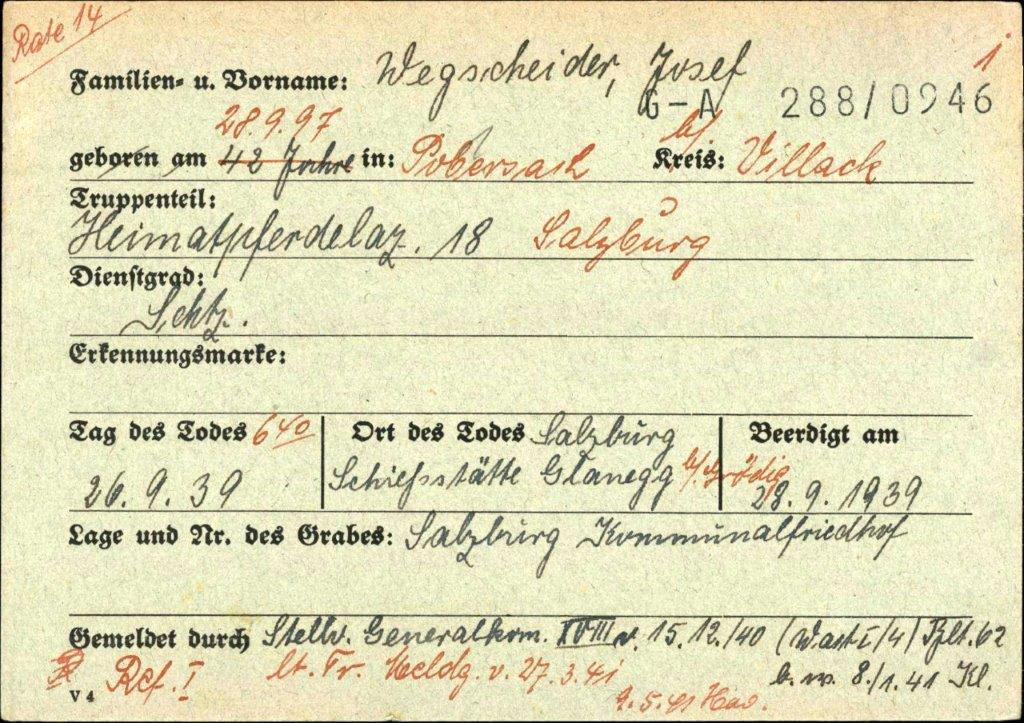 Rate 14
1
Familien- u. Vorname: Wegscheider, Josef
G-A 288/0946
28.9.97 b/
geboren am 42 Jahre in: Pobersach Kreis: Villach
Truppenteil:
Heimatpferdelaz. 18 Salzburg
Dienstgrad:
Schtz.
Erkennungsmarke:
Tag des Todes 6 40 Ort des Todes Salzburg Beerdigt am
26. 9. 39 Schießstätte Glanegg b/. Grödig 28. 9. 1939
Lage und Nr. des Grabes: Salzburg Kommunalfriedhof
Gemeldet durch Stellv. Generalkom. XVIII v. 15.12./40 (Wast I/4) Bslt. 62
Ref. I lt. Tr. Meldg. v. 27.3.41 b. w. 8./1.41 Kl.
V 4 9.5.41